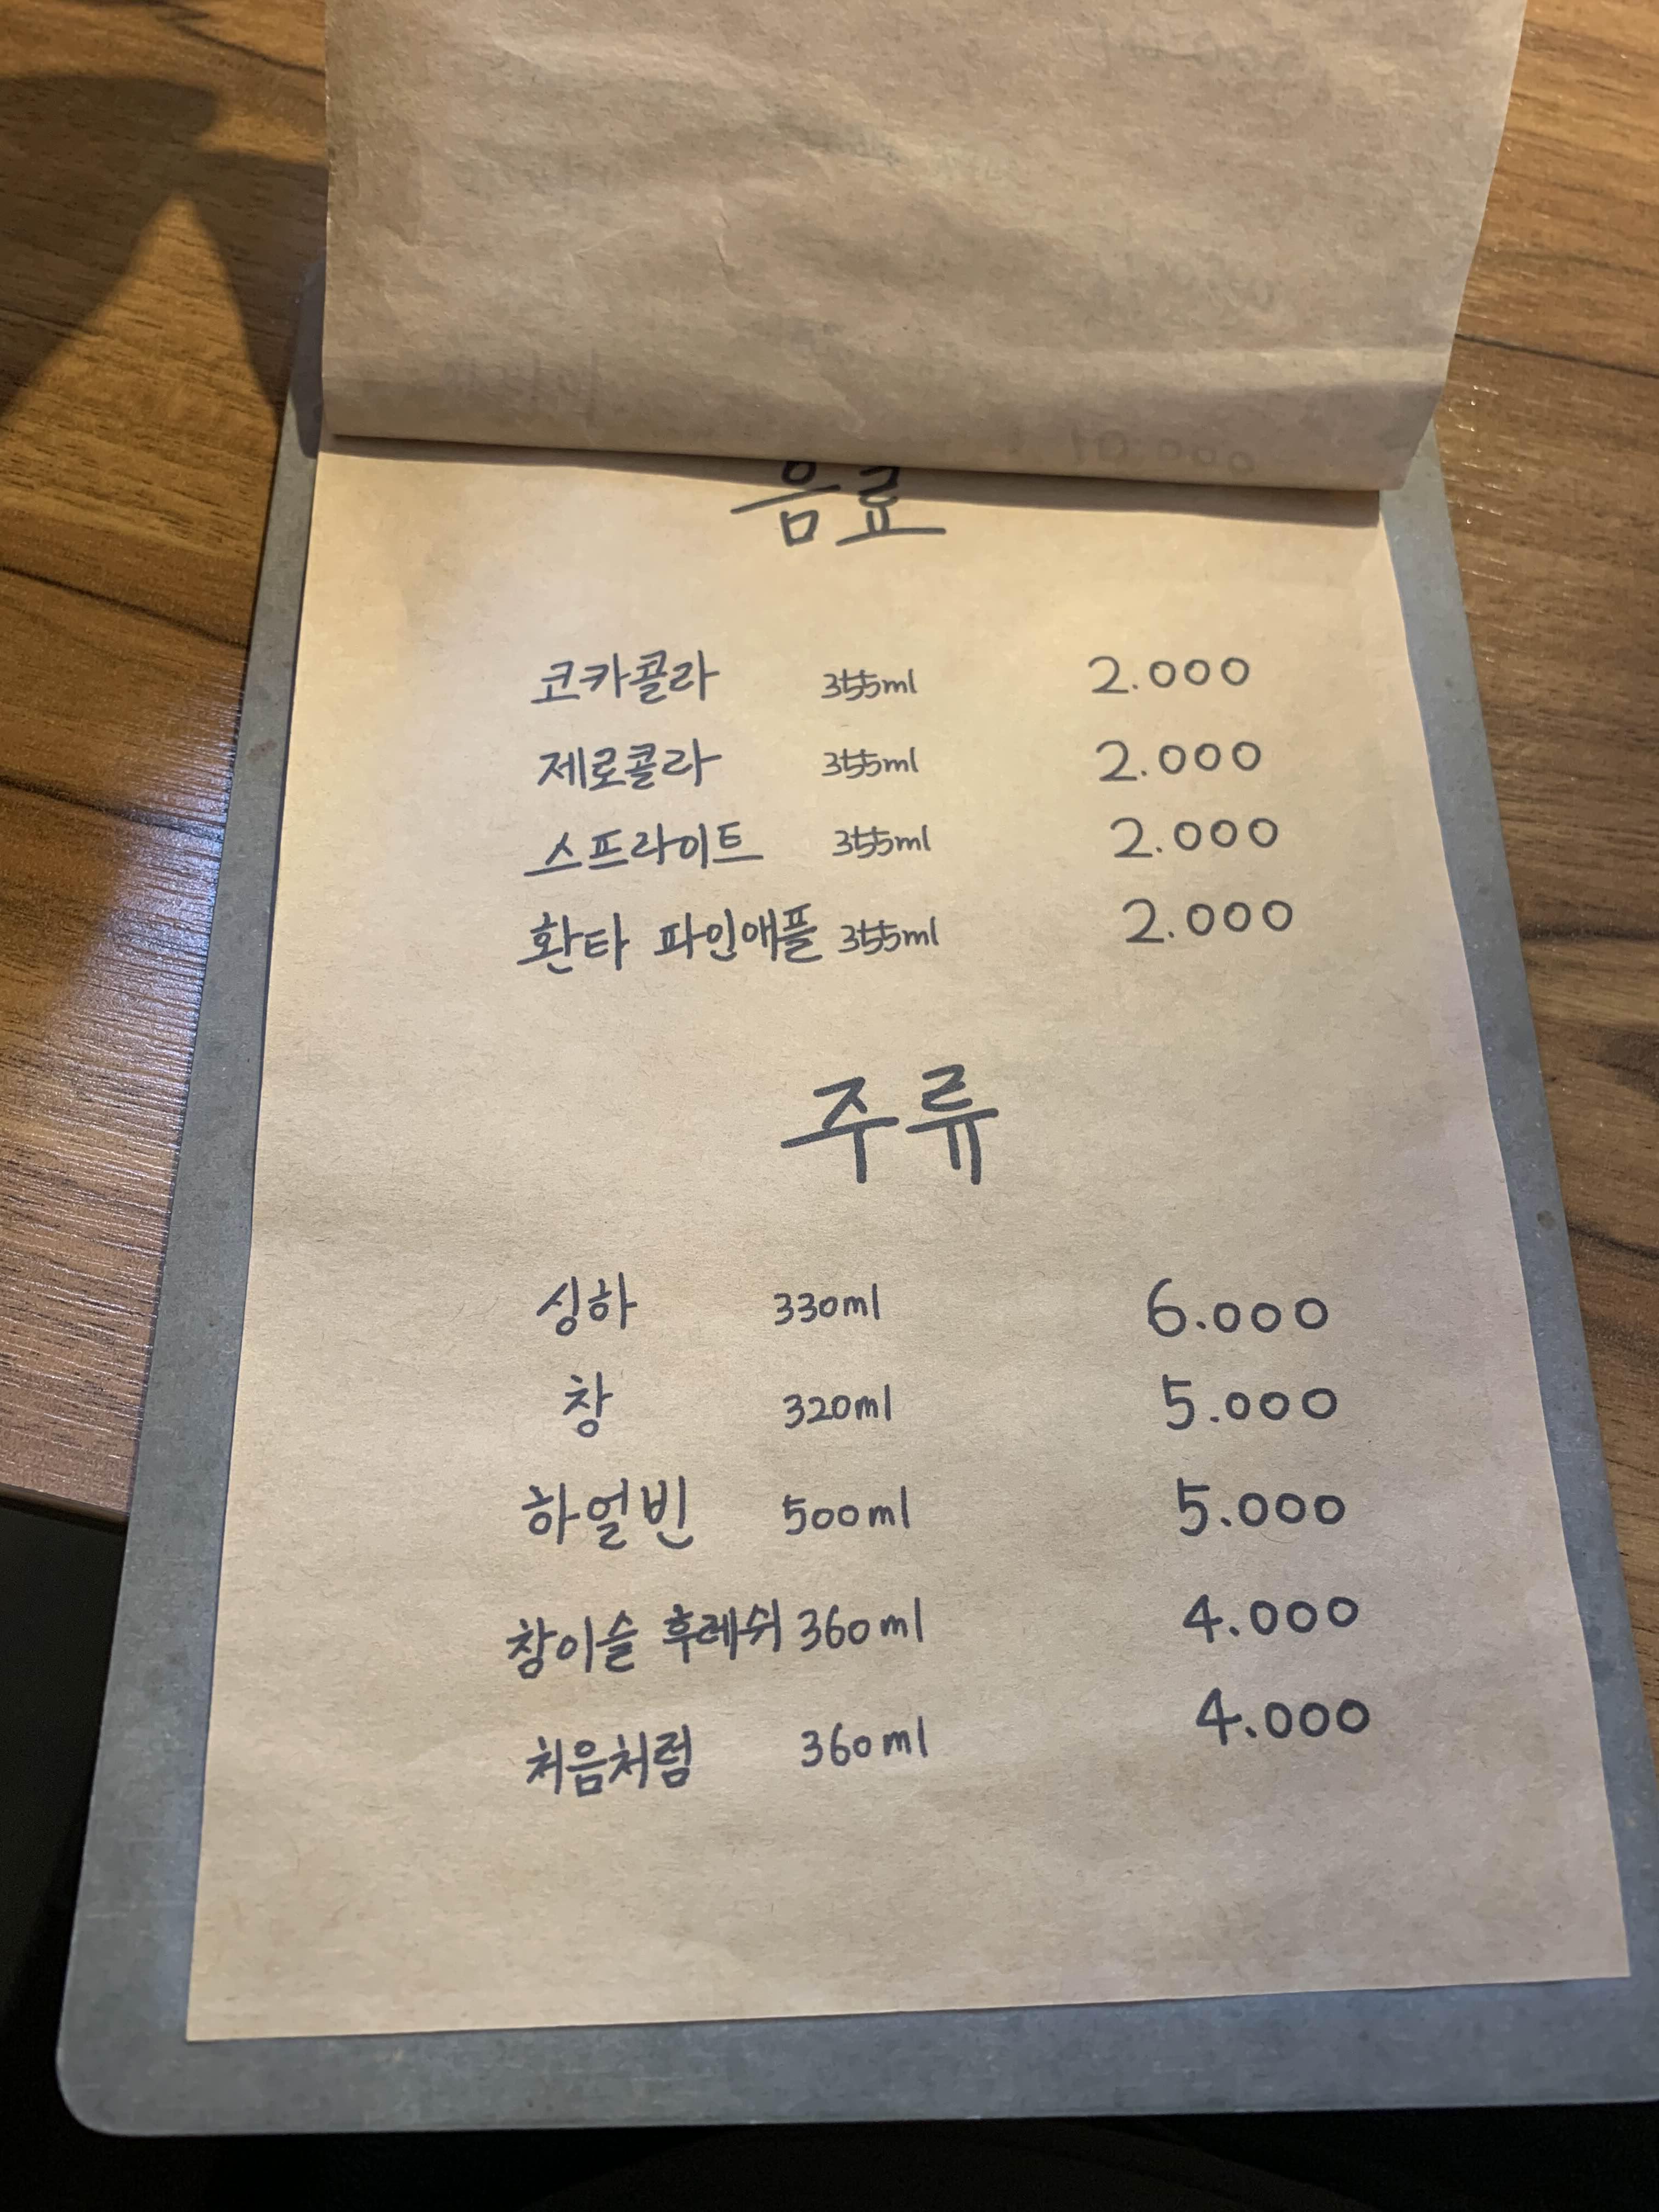 음료
코카콜라 355ml 2.000
제로콜라 355ml 2.000
스프라이트 355ml 2.000
환타 파인애플 355ml 2.000
주류
싱하 330ml 6.000
창 320ml 5.000
하얼빈 500ml 5.000
참이슬 후레쉬 360ml 4.000
처음처럼 360ml 4.000